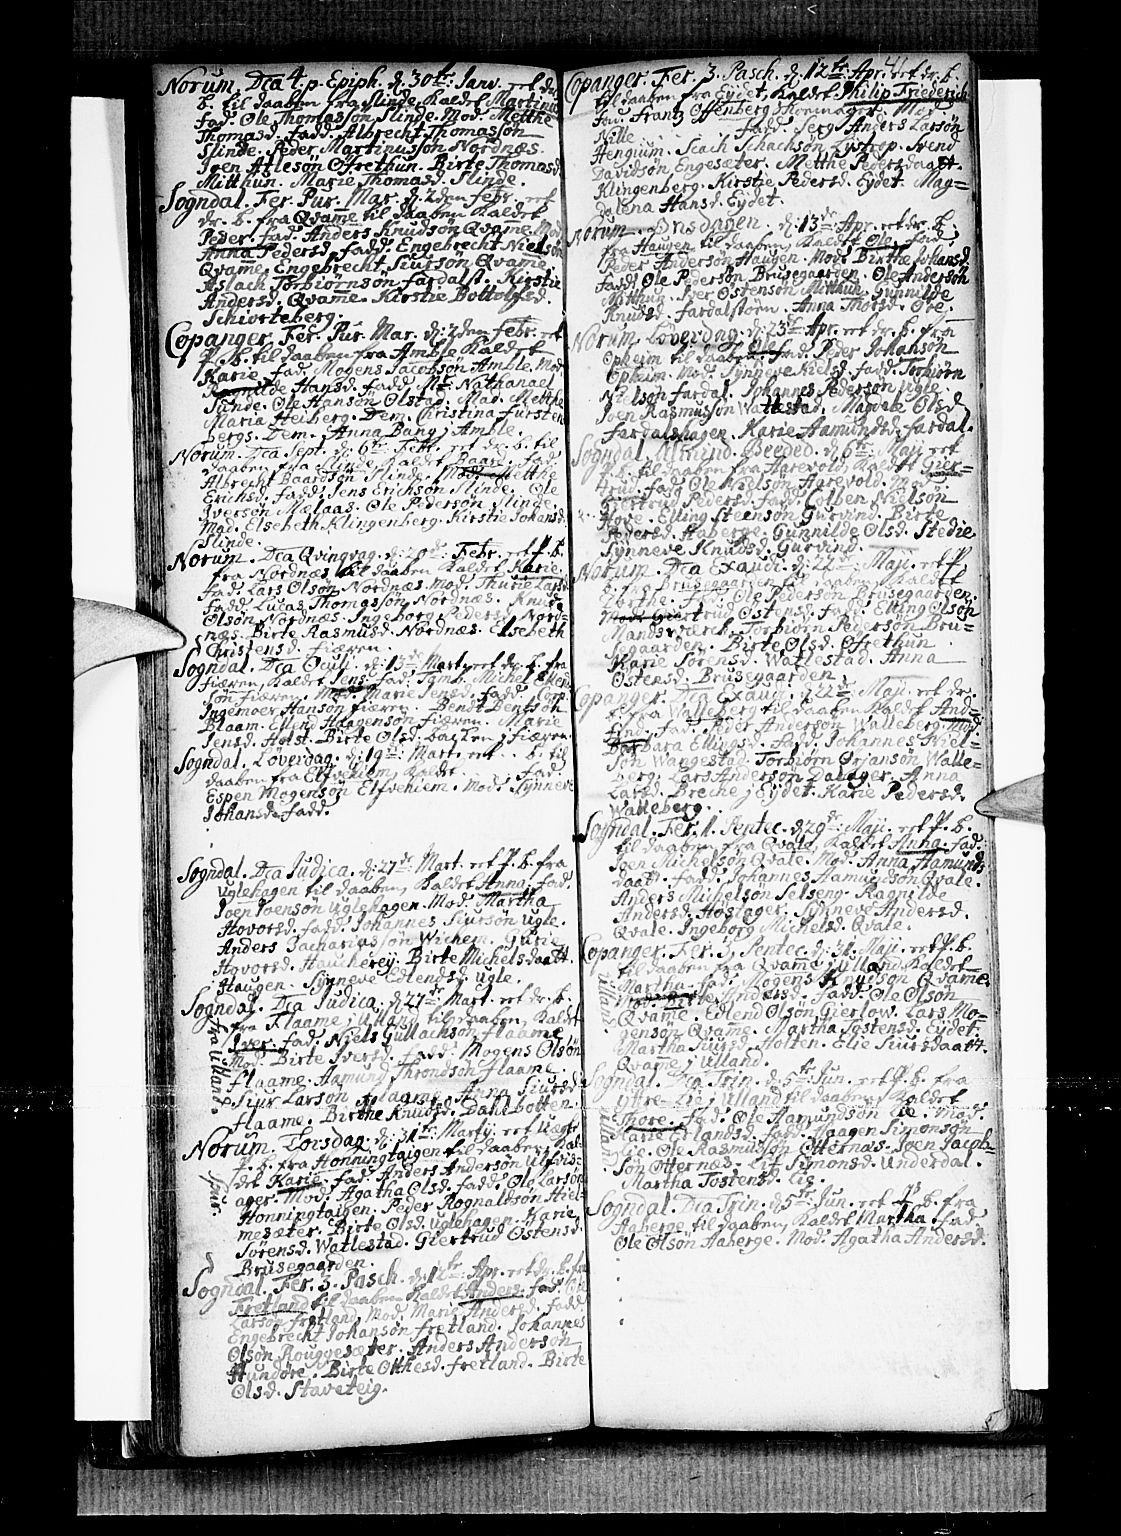 Norum. Dca 4. p. Epiph. d: 30te Janv. ert dr.
b. til daaben fra Slinde, kaldet Martinus
fad. Ole Thomassøn Slinde. Mod. Metthe
Thomasd. fadd. Albrecht Thomassøn
Slinde. Peder Martinussøn Nordnæs.
Joen Atlesøn Ofrethun. Birte Thomasd.
Mitthun. Marie Thomasd. Slinde.
Sogndal. Fer. Pur. Mar. d: 2den febr. ert
dr. b. fra Qvame til daaben kaldet
Peder. fad. Anders Knudsøn Qvame. Mod
Anna Pedersd. fadd. Engebrecht Nielsøn
Qvame, Engebrecht Siursøn Qvame
Aslach Torbiørnsøn fardalst. Kirstie
Andersd. Qvame. Kirstie Bottolfsd.
Schiorteberg.
Copanger. Fer. Pur. Mar. d: 2den febr. ert
P. b. til daaben fra Amble, kaldet
Karie. fad. Mogens Jacobsøn Amble. Mod
Hansd. fadd. Mr. Nathanael
Sunde. Ole Hansøn Olstad. Mad. Metthe
Maria Heiberg. Dem. Christina fursten
bergs. Dem. Anna Bang j Amble.
Norum. Dca Sept. d: 6te Febr. ert dr. b. til
daaben fra Slinde, kaldet Baard. fad
Albrecht Baardsøn Slinde. Mod. Metthe
Erichsd. fadd. Jens Erichsøn Slinde. Ole
Iversøn Mælaas. Ole Pedersøn Slinde.
Mad. Elsebeth Klingenberg. Kirstie Johansd.
Slinde.
Norum. Dca Qvingvag. d: 20de Febr. ert P. b.
fra Nordnæs til daaben kaldet Karie.
fad. Lars Olsøn Nordnæs. Mod. Thurie Larsd
fadd. Lucas Thomassøn Nordnæs. Knud
Olsøn Nordnæs. Ingeborg Pedersd. Nord=
næs. Birte Rasmusd. Nordnæs. Elsebeth
Christensd. fiæren.
Sogndal. Dca Oculi. d: 13de Mart. ert dr. b. fra
fiæren, kaldet Jens. fad. Tamb. Michel Ellen
søn fiæren. Mod. Marie Jensd. fadd. Corp.
Ingemoer Hansøn fiæren. Bendt Bentsøn
Blaam. Ellend Haagensøn fiæren. Marie
Jensd. Holst. Birte Olsd. backen j fiæren.
Sogndal. Løverdag. d: 19de Mart. ert b. til
daaben fra Elfvehiem, kaldet fad.
Espen Mogensøn Elfvehiem. Mod. Synneve
Johansd. fadd.
Sogndal. Dca Judica. d: 27de Mart. ert P. b. fra
Uglehagen til daaben, kaldet Anna. fad.
Joen Joensøn Uglehagen. Mod. Martha
Hovorsd. fadd. Johannes Siursøn Ugle.
Anders Zachariassøn Wichem. Gurie
Hovorsd. Hauckerey. Birte Michelsdaatt.
Haugen. Synneve Edlendsd. Ugle.
Sogndal. Dca Judica. d: 27de Mart. ert dr. b.
fra Flaame j Ulland til daaben, kaldet
Iver. fad. Niels Gullachsøn Flaame
Mod. Birte Iversd. fadd. Mogens Olsøn
Flaame. Aamund Throndsøn flaame.
Siur Larsøn flaame. Anna Siursd.
flaame. Birthe Knudsd. Dahlbotten.
fra Ulland.
Norum. Torsdag. d: 31te Martij. ert uægte
P. b. fra Honningtaigen til daaben, kal=
det Karie. fad. Anders Andersøn Ulfvis=
ager. Mod. Agatha Olsd. fadd. Ole Larsøn
Honningtaigen. Peder Rognaldsøn Hiel=
mesæter. Birte Olsd. Uglehagen. Karie
Sørensd. Watlestad. Giertrud Østensd.
Brusegaarden.
Spur.
Sogndal. Fer. 3. Pasch. d: 12te Apr. ert dr. b. fra
Fretland til daaben kaldet Anders. fad. Ole
Larsøn fretland. Mod. Marie Andersd. fadd
Engebrecht Johansøn fretland. Johannes
Olsøn Rouggesæter. Anders Andersøn
Hundøre. Birte Otthesd. fretland. Birte
Olsd. Staveteig.
41
Copanger. Fer. 3. Pasch. d: 12te Apr. ert dr. b.
til daaben fra Eydet, kaldet Philip Friederich
fad. Frantz Offenberg Skomager. Mod.
Nille fadd. Serg. Anders Larsøn
Hengium. Zach Schachsøn Lystrop. Svend
Davidsøn Engesæter. Metthe Pedersdaatt.
Klingenberg. Kirstie Pedersd. Eydet. Mag=
dalena Hansd. Eydet.
Norum. Onsdagen. d: 13de Apr. ert dr. b.
fra Haugen til daaben, kaldet Ole. fad.
Peder Andersøn Haugen. Mod. Birthe Johansd.
fadd. Ole Pedersøn Brusegaarden. Ole Andersøn
Mitthun. Iver Østensøn Mitthun. Gunnilde
Knudsd. fardalstørn. Anna Thorsd. Ole.
Norum. Løverdag. d: 23de Apr. ert dr. b. fra
Opheim til daaben, Ole. fad. Peder Johansøn
Opheim. Mod. Synneve Nielsd. fadd. Torbiørn
Nielsøn fardal. Johannes Pedersøn Ugle.
Joen Rasmussøn Wattestad. Magdele Olsd.
fardalshagen. Karie Aamundsd. fardal.
Sogndal. Almindl. Beeded. d: 6te Maji. ert
P. b. til daaben fra Aarevold, kaldet Gier=
trud. fad. Ole Nielsøn Aarevold. Mod.
Giertrud Pedersd. fadd. Elben Nielsøn
Hove. Elling Steensøn Gurvind. Birte
Pedersd. Haberge. Gunnilde Olsd. Stedie
Synneve Knudsd. Gurvind.
Norum. Dca Exaudi. d: 22de Maji. ert P.
b. fra Brusegaarden til daaben, kaldet
Borthe. fad. Ole Pedersøn Brusegaarden.
Mod. Giertrud Østensd. fadd. Elling Olsøn
Mandsværck. Torbiørn Pedersøn Bru=
segaarden. Birte Olsd. Ofrethun.
Karie Sørensd. Watlestad. Anna
Østensd. Brusegaarden.
Copanger. Dca Exaudi. d: 22de Maji. ert dr.
b. fra Walleberg til daaben, kaldet And=
fad. Peder Andersøn Walleberg. Mod.
Barbara Ellingsd. fadd. Johannes Niel=
søn Wangestad. Torbiørn Ørjansøn Walle=
berg. Lars Andersøn Dalager. Anna
Larsd. Breche j Eydet. Karie Pedersd.
Walleberg.
Sogndal. Fer. 1. Pentec. d: 29de Maji. ert P. b.
til daaben, fra Qvale, kaldet Anna. fad.
Joen Michelsøn Qvale. Mod. Anna Aamunds
daatt. fadd. Johannes Aamundsøn Qvale.
Anders Michelsøn Selseng. Ragnilde
Andersd. Hostager. Synneve Andersd.
Qvale. Ingeborg Michelsd. Qvale.
Copanger. Fer. 3. Pentec. d: 31. Maji. ert P. b.
til daaben fra Qvame j Ulland kaldet
Martha. fad. Mogens Knudsøn Qvame.
Mod. Birte Andersd. fadd. Ole Olsøn
Qvame. Edlend Olsøn Gierløw. Lars Mo=
gensøn Qvame. Martha Jostensd. Eydet.
Martha Siursd. Holten. Elie Siursdaatt.
Qvame j Ulland.
Ulland.
Sogndal. Dca Trin. d: 5te Jun. ert P. b. fra
Yttre-Lie j Ulland til daaben, kaldet
Thore. fad. Ole Aamundsøn Lie. Mod.
Karie Erlandsd. fadd. Haagen Simonsøn
Lie. Ole Rasmusøn Otternæs. Joen Jacob=
søn Otternæs. Lif Simonsd. Underdal.
Martha Tostensd. Lie.
Ulland
Sogndal. Dca Trin. d: 5te Jun. ert P. b. fra
Aaberge til daaben, kaldet Martha. fad.
Ole Olsøn Aaberge. Mod. Agatha Andersd.